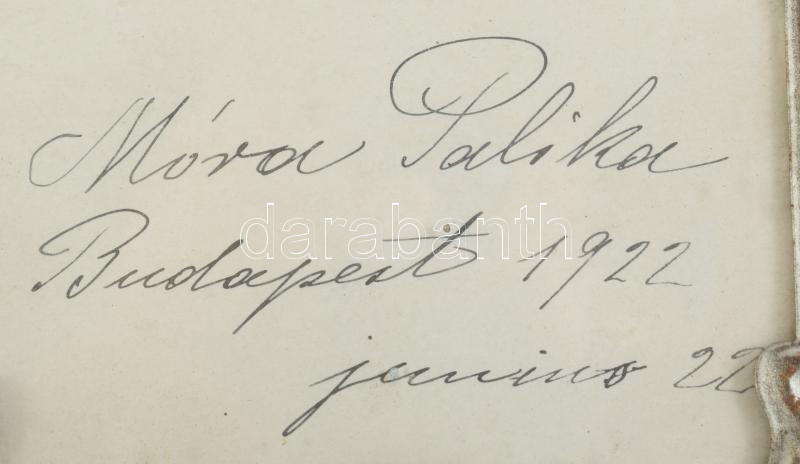 Móra Palika
darabanth
Budapest 1922
junius 22